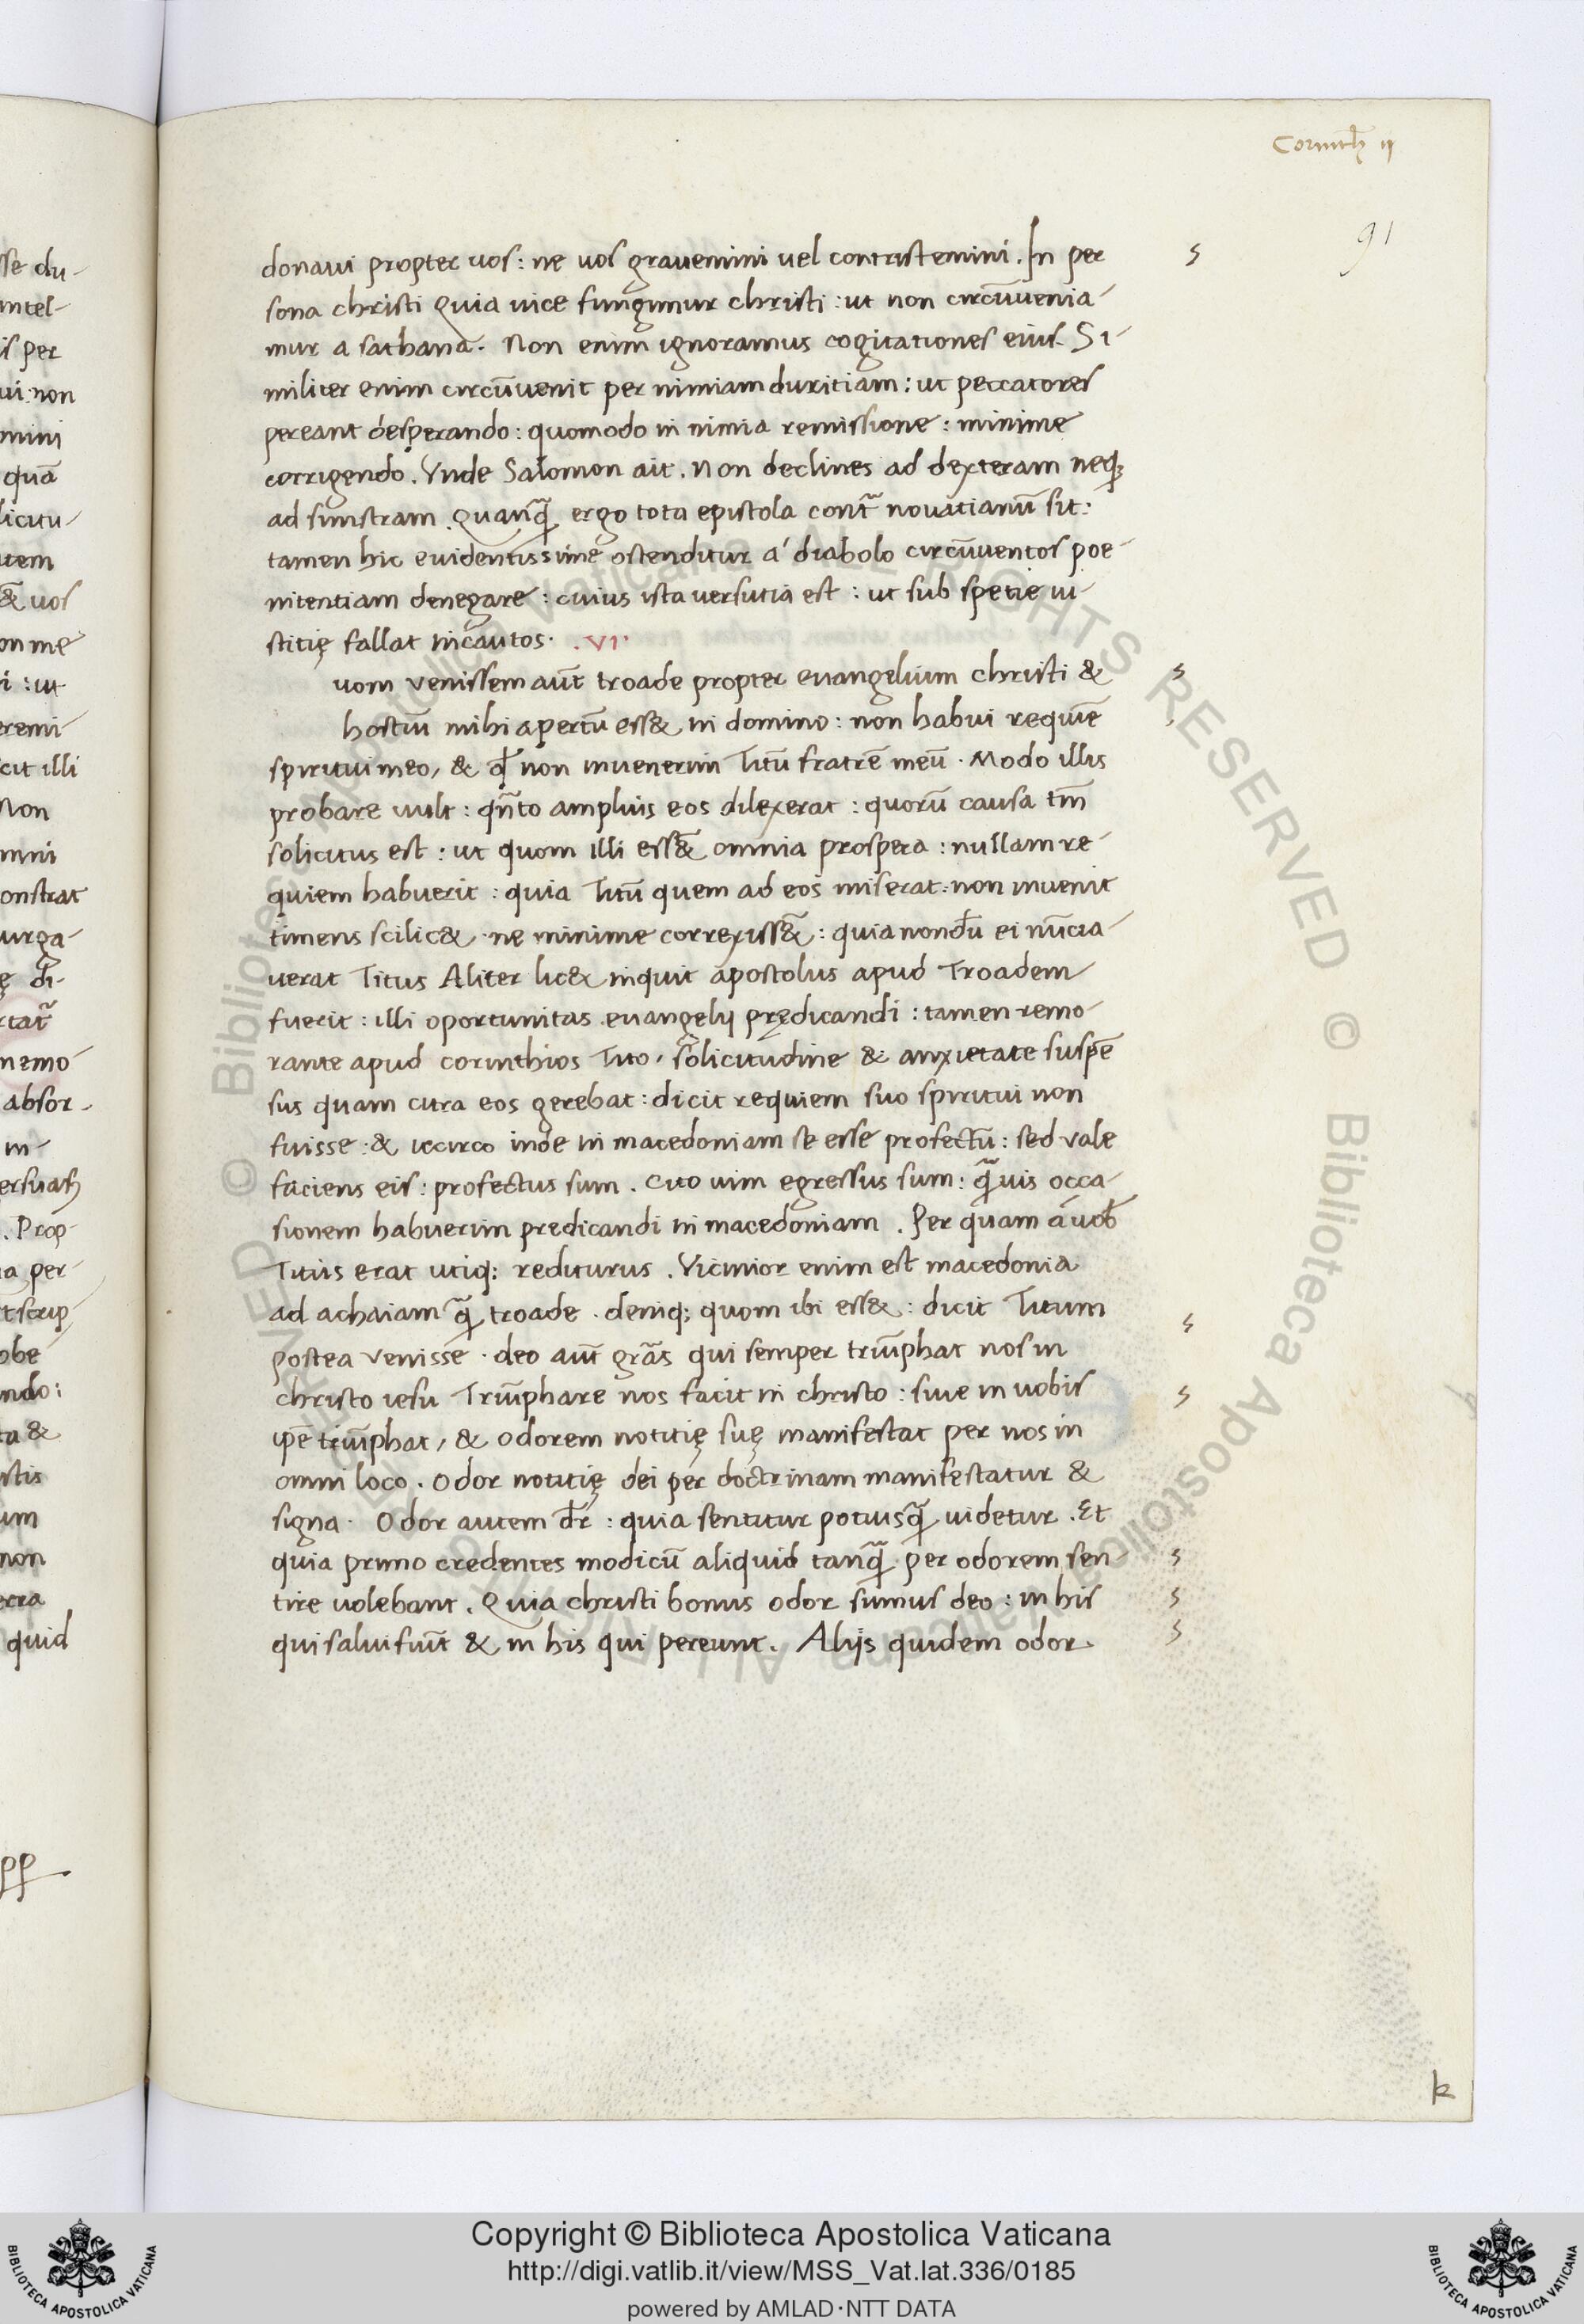 Corinth ij
91
donavi propter vos: ne vos gravemini vel contristemini. In per
sona christi Quia vice fungimur christi: ut non circūvenia-
mur a sathana. Non enim ignoramus cogitationes eius. Si-
militer enim circūvenit per nimiam duritiam: ut peccatores
pereant desperando: quomodo in nimia remissione: minime
corrigendo. Vnde Salomon ait. Non declines ad dexteram neq;
ad sinistram. Quanq̃ ergo tota epistola contr̃ novatianū sit:
tamen hic evidentissime ostenditur a' diabolo circūventos poe-
nitentiam denegare: cuius ista versutia est: ut sub spetie iu-
stitię fallat incautos. .VI.
uom venissem aūt troade propter evangelium christi &
hostiū mihi apertū ess& in domino: non habui requiē
spiritui meo, & q̃ non invenerim Titū fratrē meū. Modo illis
probare vult: qñto amplius eos dilexerat: quorū causa tm̄
solicitus est: ut quom illi ess& omnia prospera: nullam re-
quiem habuerit: quia Titū quem ad eos miserat: non invenit
timens scilic& ne minime correxiss&: quia nondū ei nūcia-
verat Titus Aliter lic& inquit apostolus apud Troadem
fuerit: illi oportunitas evangelij prędicandi: tamen remo-
rante apud corinthios Tito, solicitudine & anxietate suspē
sus quam citra eos gerebat: dicit requiem suo spiritui non
fuisse: & iccirco inde in macedoniam se esse profectū: sed vale
faciens eis: profectus sum. Cito vim egressus sum: q̃vis occa-
sionem habuerim predicandi in macedoniam. Per quam a' vob̃
Titus erat utiq; rediturus. Vicinior enim est macedonia
ad achaiam q̃ troade. deniq; quom ibi ess&: dicit Titum
postea venisse. deo aūt grãs qui semper triūphat nos in
christo iesu Triūphare nos facit in christo: sive in vobis
ipē triūphat, & odorem notitię suę manifestat per nos in
omni loco. Odor notitię dei per doctrinam manifestatur &
signa. Odor autem dr̃: quia sentitur potiusq̃ videtur. Et
quia primo credentes modicū aliquid tanq̃ per odorem sen-
tire volebant. Quia christi bonus odor sumus deo: in his
qui salvi fiūt & in his qui pereunt. Alijs quidem odor
k
Copyright © Biblioteca Apostolica Vaticana
http://digi.vatlib.it/view/MSS_Vat.lat.336/0185
powered by AMLAD·NTT DATA